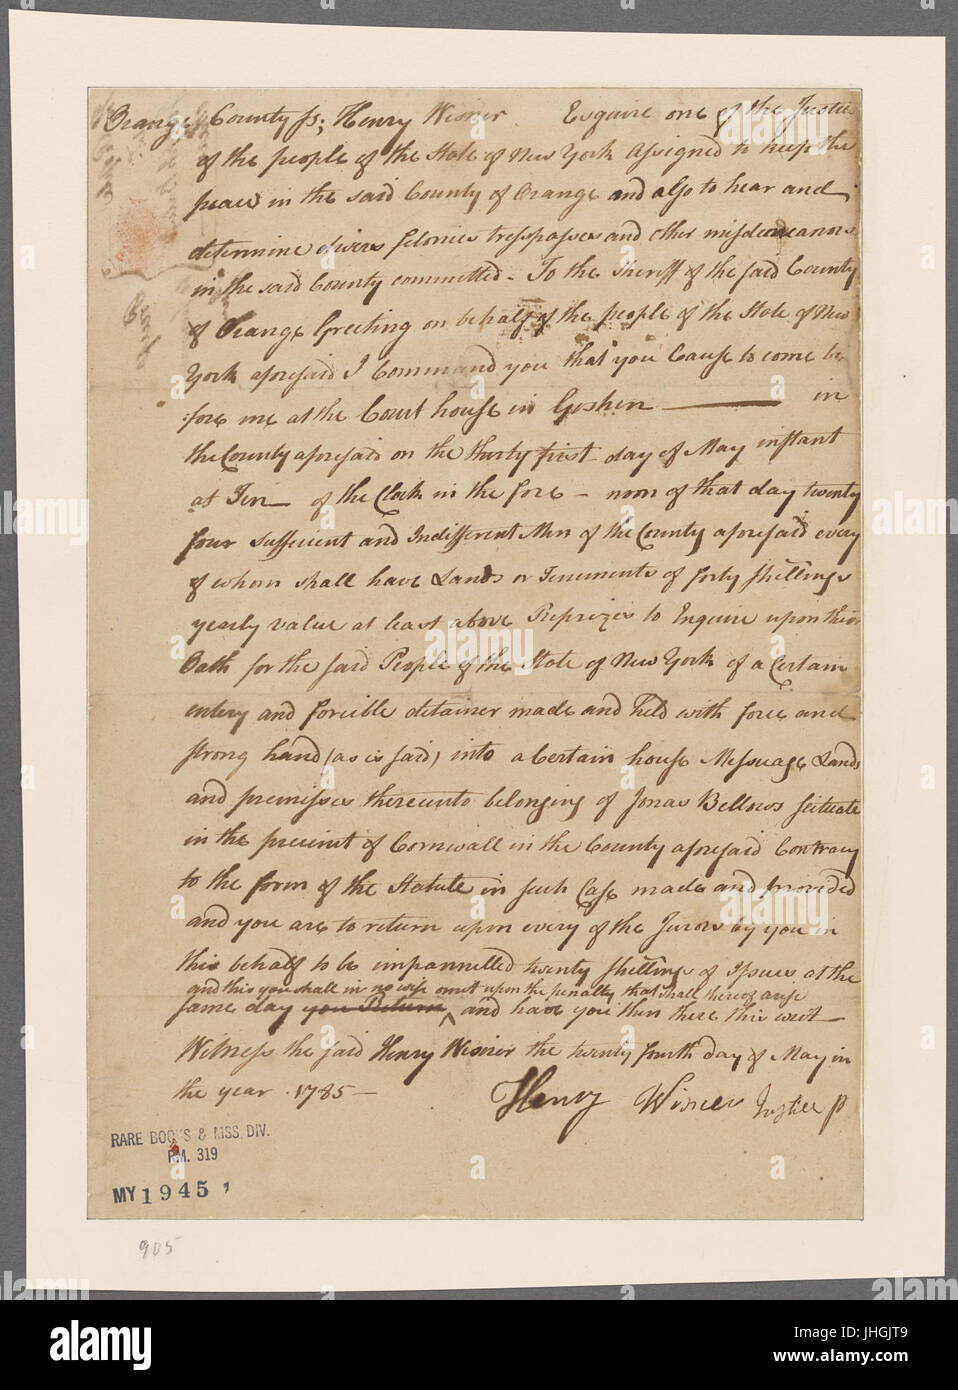 Orange County ſs; Henry Wisner Esquire one of the Justices
of the people of the State of New York Aſsigned to keep the
peace in the said County of Orange and also to hear and
determine divers felonies trespasses and other miſdemeanors
in the said County committed - To the Sheriff of the ſaid County
of Orange Greeting on behalf of the people of the State of New
York aforeſaid I Command you that you Cauſe to come be
:fore me at the Court houſe in Goshen ——— in
the County aforeſaid on the thirty first day of May inſtant
at Ten — of the Clock in the fore - noon of that day twenty
four sufficient and Indifferent Men of the County aforeſaid every
of whom shall have Lands or Tenements of forty ſhillings
yearly value at least above Reprizes to Enquire upon their
Oath for the ſaid People of the State of New York of a Certain
entery and forcible detainer made and held with force and
strong hand (as is ſaid) into a Certain houſe Meſsuage Lands
and premiſses thereunto belonging of Jonas Bellows ſcituate
in the precinct of Cornwall in the County aforeſaid Contrary
to the form of the Statute in ſuch Caſe made and provided
and you are to return upon every of the Jurors by you in
this behalf to be impannelled twenty ſhillings of Iſsues at the
and this you shall in no wiſe omit upon the penalty that shall thereof ariſe
ſame day you Return ^ and have you then there this writ —
Witneſs the ſaid Henry Wisner the twenty fourth day of May in
the year 1785 —
Henry Wisner Justice P
RARE BOOKS & MSS. DIV.
RM. 319
MY 1945
905
alamy
alamy stock photo
JHGJT9
www.alamy.com